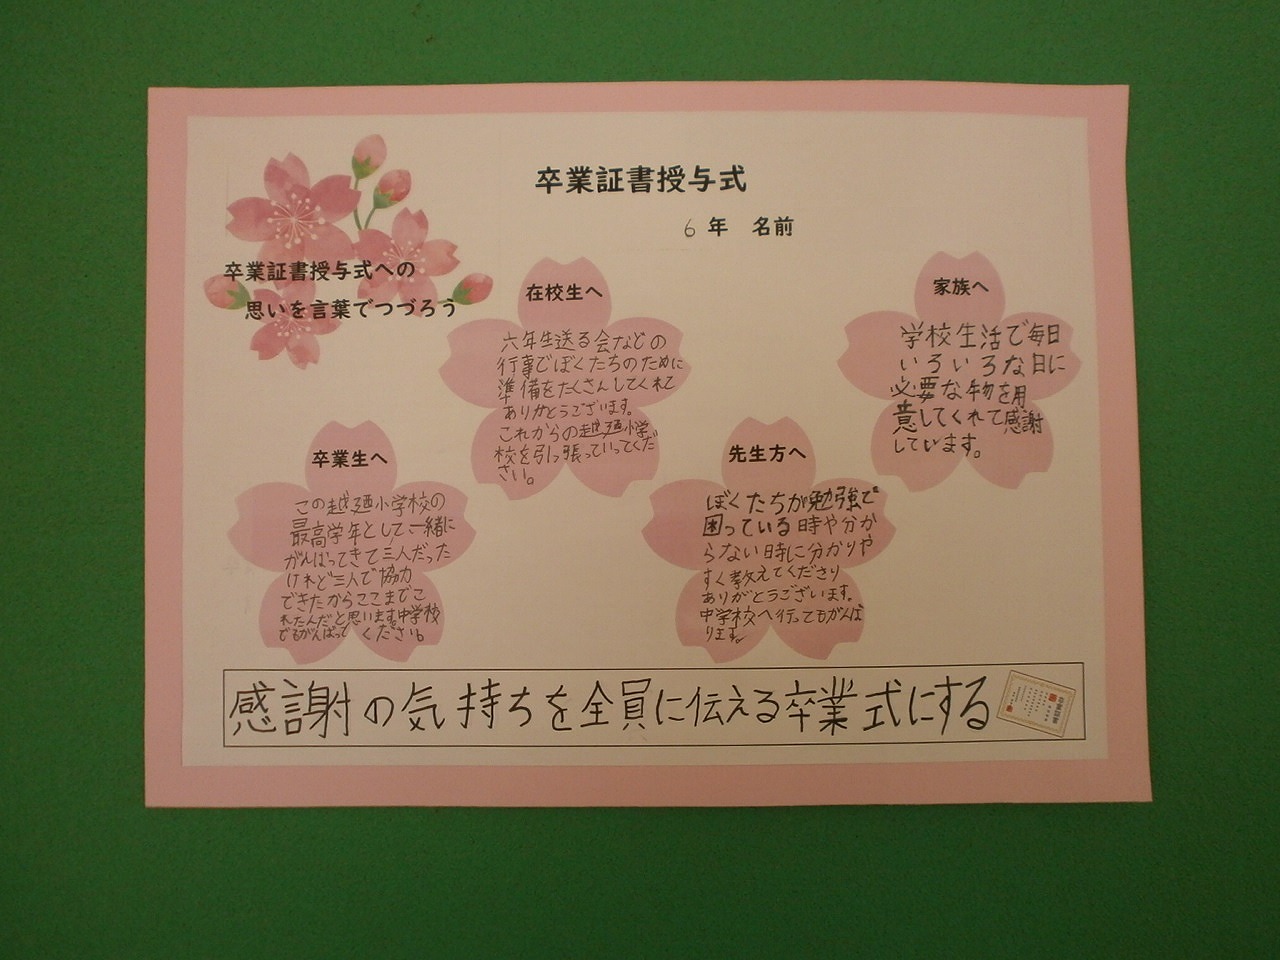 卒業証書授与式
6年 名前
卒業証書授与式への
思いを言葉でつづろう
在校生へ
六年生送る会などの
行事でぼくたちのために
準備をたくさんしてくれて
ありがとうございます。
これからの越廼小学
校を引っ張っていってくだ
さい。
家族へ
学校生活で毎日
いろいろな日に
必要な物を用
意してくれて感謝
しています。
卒業生へ
この越廼小学校の
最高学年として、一緒に
がんばってきて三人だった
けれど三人で協力
できたからここまでこ
れたんだと思います。中学校
でもがんばってください。
先生方へ
ぼくたちが勉強で
困っている時や分か
らない時に分かりや
すく教えてくださり
ありがとうございます。
中学校へ行ってもがんば
ります。
感謝の気持ちを全員に伝える卒業式にする